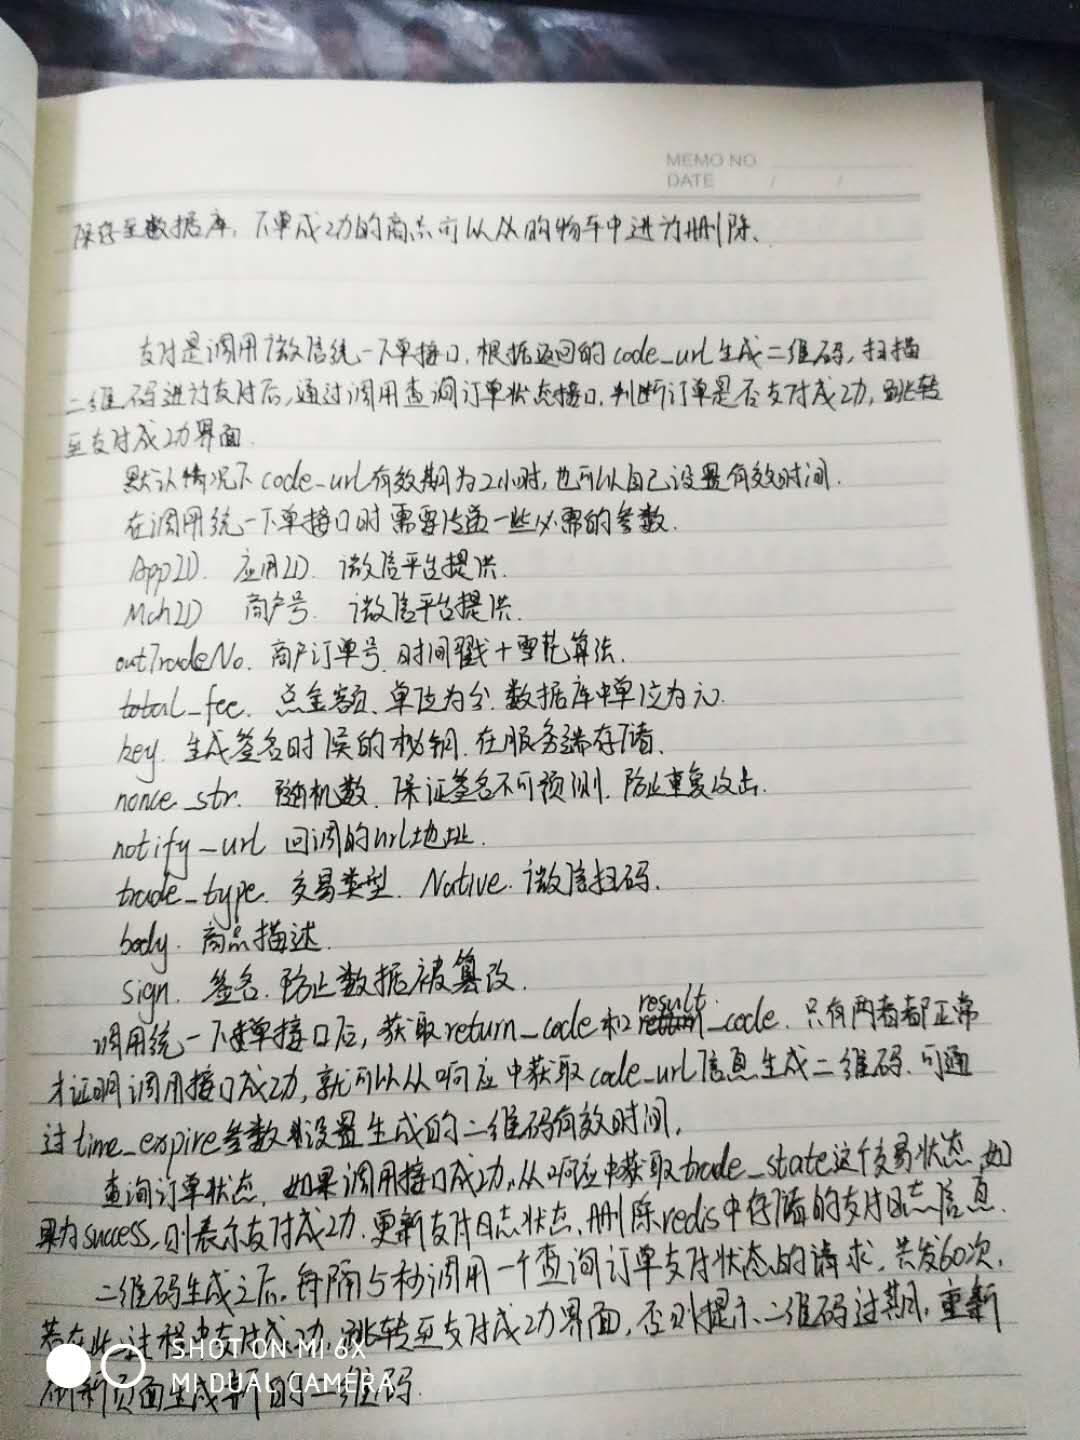 MEMO NO
DATE / /
保存至数据库，下单成功的商品可以从购物车中进行删除、
支付是调用微信统一下单接口，根据返回的code_url生成二维码，扫描
二维码进行支付后，通过调用查询订单状态接口，判断订单是否支付成功，跳转
至支付成功界面.
默认情况下code_url有效期为2小时，也可以自己设置有效时间.
在调用统一下单接口时需要传递一些必需的参数.
AppID. 应用ID. 微信平台提供.
MchID 商户号. 微信平台提供.
outTradeNo. 商户订单号. 时间戳+雪花算法.
total_fee. 总金额、单位为分. 数据库中单位为元.
key. 生成签名时候的秘钥. 在服务端存储、
nonce_str. 随机数、保证签名不可预测. 防止重复攻击.
notify_url 回调的url地址.
trade_type. 交易类型. Native. 微信扫码.
body. 商品描述.
sign. 签名. 防止数据被篡改.
调用统一下单接口后，获取return_code和result_code. 只有两者都正常
才证明调用接口成功，就可以从响应中获取code_url信息生成二维码. 可通
过time_expire参数设置生成的二维码有效时间.
查询订单状态，如果调用接口成功，从响应中获取trade_state这个交易状态，如
果为success，则表示支付成功. 更新支付日志状态、删除redis中存储的支付日志信息.
二维码生成之后，每隔5秒调用一个查询订单支付状态的请求. 共发60次.
若在此过程中支付成功，跳转至支付成功界面，否则提示二维码过期，重新
刷新页面生成新的二维码.
SHOT ON MI 6X
MI DUAL CAMERA